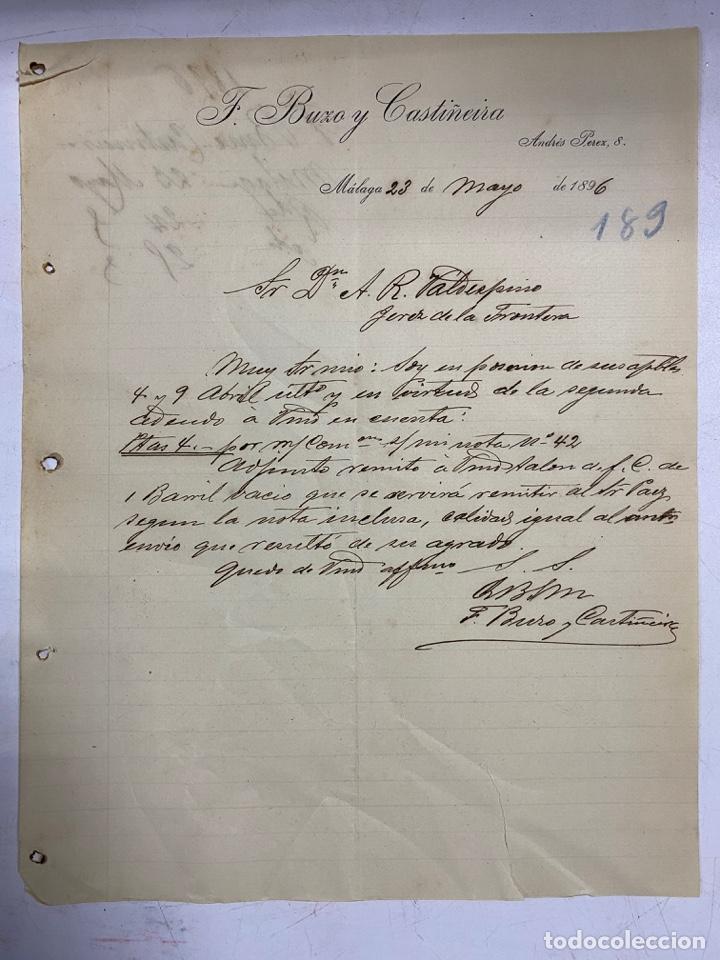 F. Buzo y Castiñeira
Andrés Perez, 8.
Málaga 23 de Mayo de 1896
189
Sr Dn A. R. Valdespino
Jerez de la Frontera
Muy Sr mio: Soy en posesion de sus aptbles
4 y 9 Abril ulto y en virtud de la segunda
adeudo à Vmd en cuenta:
Ptas 4.- por m/ Comon s/ mi nota Nº 42
Adjunto remito à Vmd talon d. f. C. de
1 Barril vacio que se servirá remitir al Sr Paez
segun la nota inclusa, calidad igual al antr
envio que resultó de su agrado.
Quedo de Vmd affmo S. S.
QBSM
F. Buzo y Castiñeira
todocoleccion